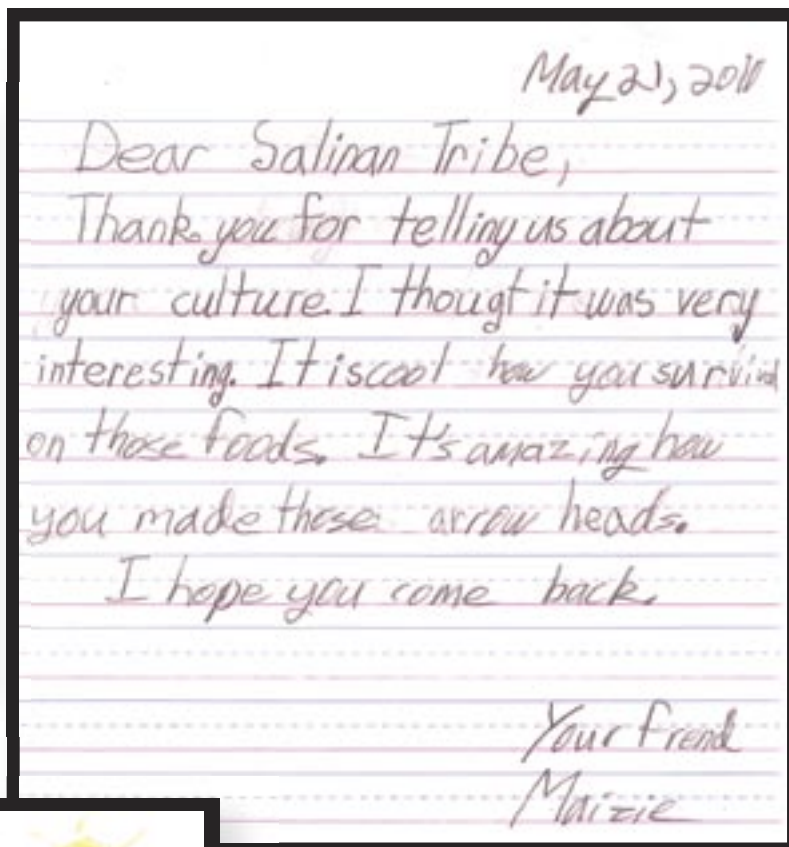 May 21, 2010
Dear Salinan Tribe,
Thank you for telling us about
your culture. I thougt it was very
interesting. It is cool how you survived
on those foods. It's amazing how
you made those arrow heads.
I hope you come back.
Your frend
Maizie